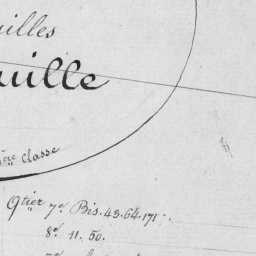 uilles
uille
ère Classe
Qtier 7e Bis. 43. 64. 171.
8e 11. 50.